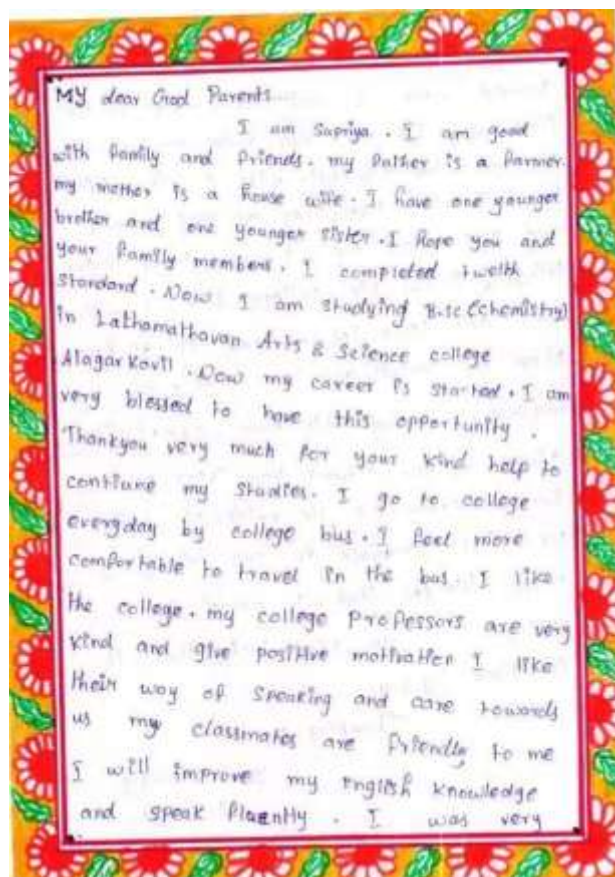 MY dear God Parents
I am Supriya. I am good
with family and friends. my father is a farmer.
my mother is a house wife. I have one younger
brother and one younger sister. I hope you and
your family members. I completed twelth
Standard. Now I am studying B.sc (chemistry)
in Lathamathavan Arts & Science college
Alagar Kovil. Now my career is started. I am
very blessed to have this opportunity.
Thankyou very much for your kind help to
contiune my studies. I go to college
everyday by college bus. I feel more
comfortable to travel in the bus. I like
the college. my college professors are very
kind and give positive motivation I like
their way of speaking and care towards
us my classmates are friendly to me
I will improve my English knowledge
and speak fluently. I was very